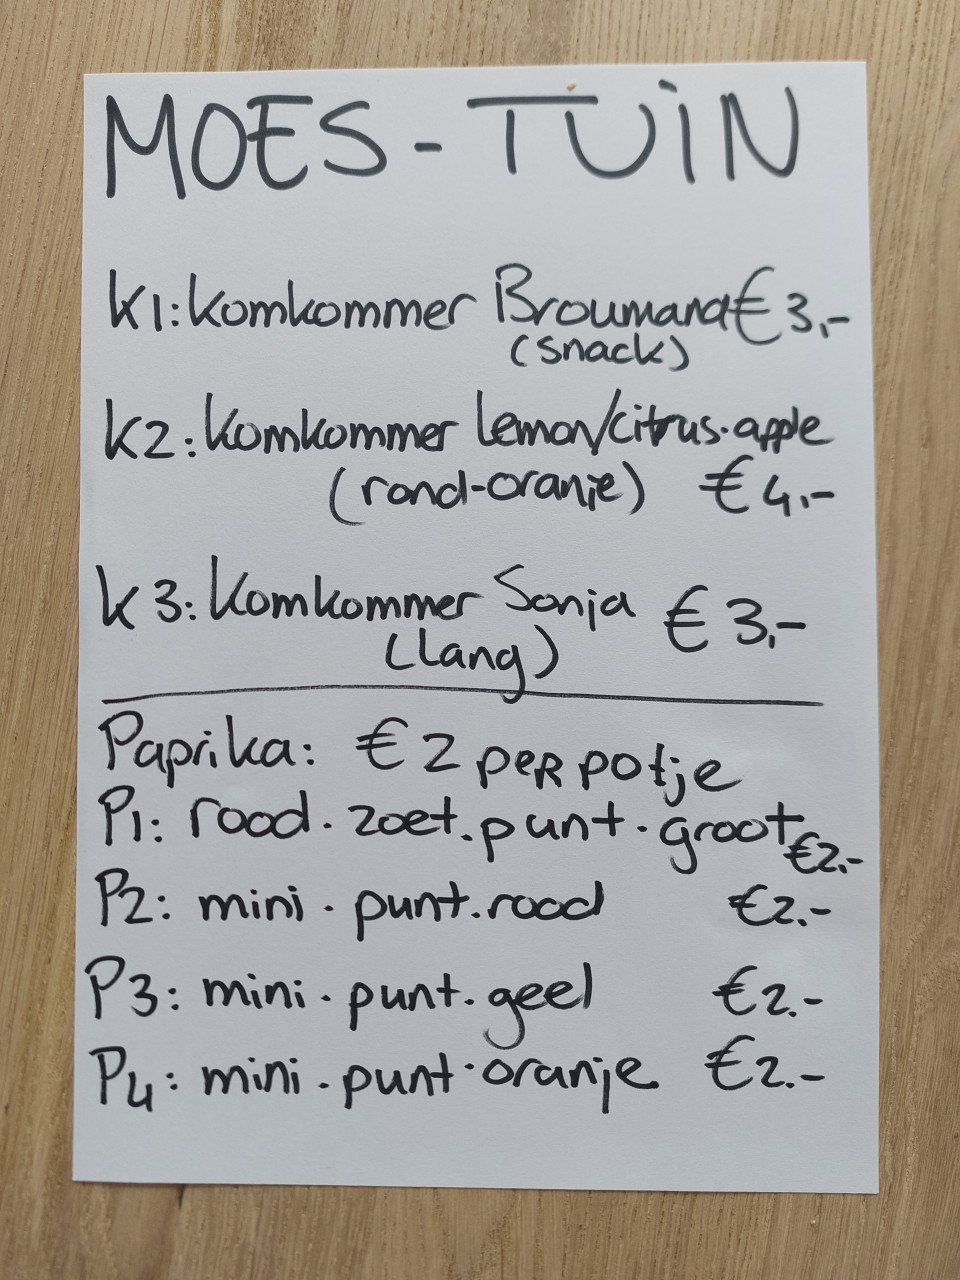 MOES-TUIN
K1: Komkommer Broumana € 3,-
(snack)
K2: Komkommer Lemon/citrus.apple
(rond-oranje) € 4,-
K3: Komkommer Sonja € 3,-
(Lang)
Paprika: € 2 per potje
P1: rood. zoet. punt. groot €2.-
P2: mini. punt. rood €2.-
P3: mini. punt. geel €2.-
P4: mini. punt. oranje €2.-